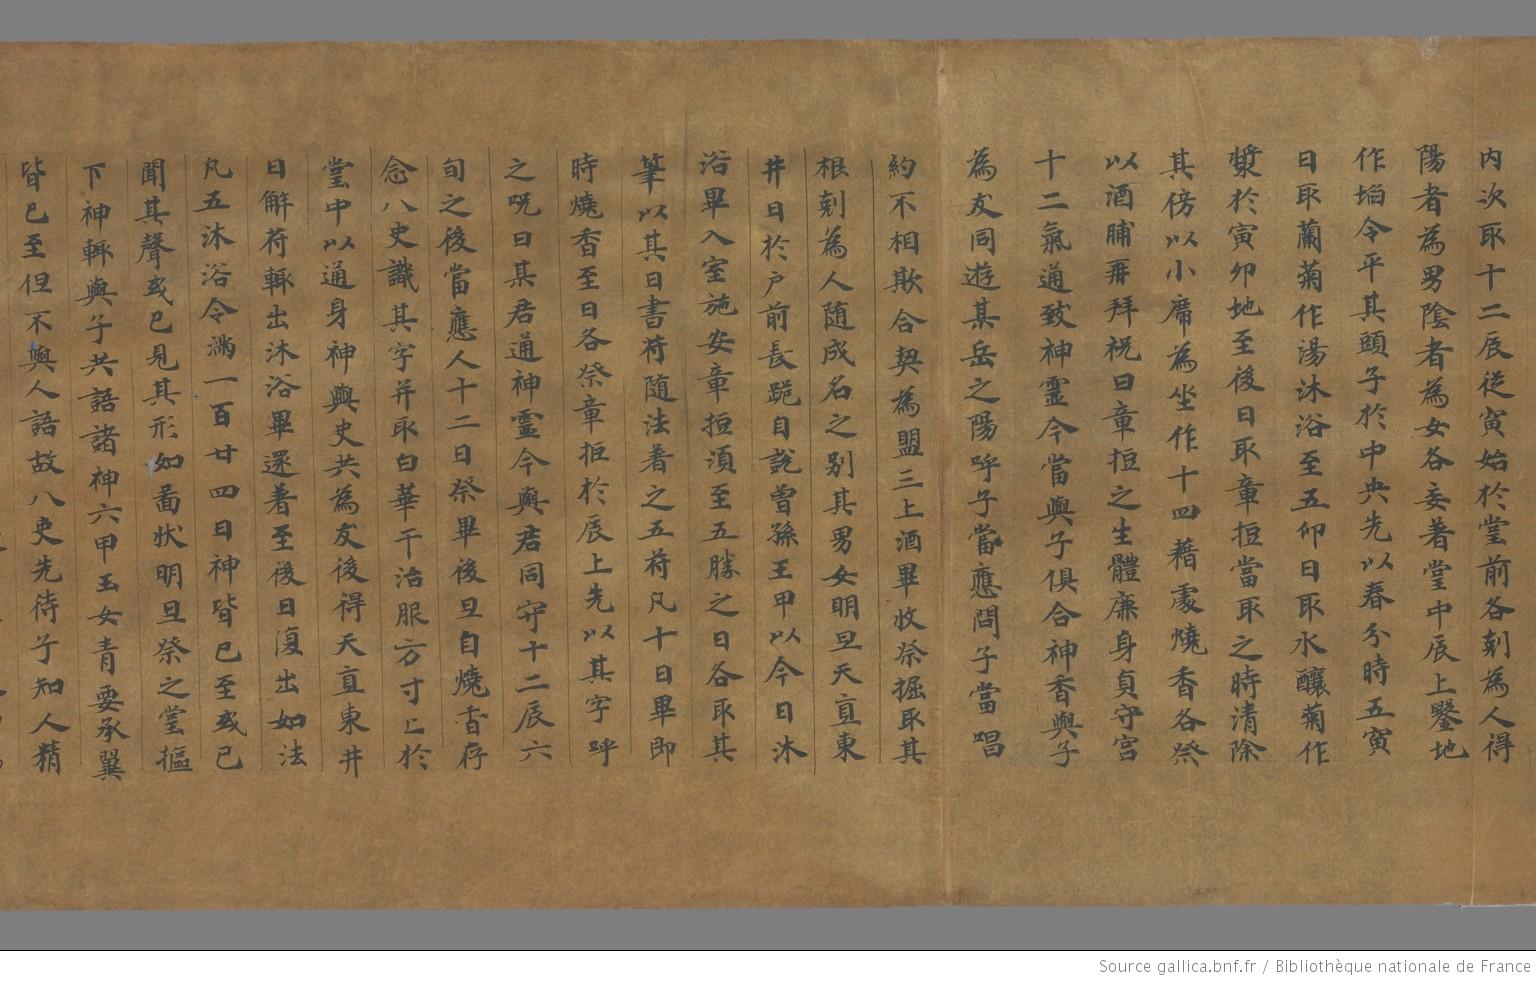 內次取十二辰從寅始於堂前各剋為人得
陽者為男陰者為女各妄著堂中辰上鑿地
作埳令平其頭子於中央先以春分時五寅
日取蘭菊作湯沐浴至五卯日取水釀菊作
漿於寅卯地至後日取章拒當取之時清除
其傍以小席為坐作十四藉處燒香各祭
以酒脯再拜祝曰章拒之生體廉身貞守宮
十二氣通致神靈今當與子俱合神香與子
為友同遊某岳之陽呼子當應問子當唱
約不相欺合契為盟三上酒畢收祭掘取其
根剋為人隨成名之別其男女明旦天亶東
井日於戶前長跪自說曾孫王甲以今日沐
浴畢入室施安章拒須至五勝之日各取其
筆以其日書符隨法著之五符凡十日畢即
時燒香至日各祭章拒於辰上先以其字呼
之呪曰某君通神靈今與君同守十二辰六
旬之後當應人十二日祭畢後旦自燒香存
念八史識其字并取白華干治服方寸匕於
堂中以通身神與史共為友後得天亶東井
日解符輙出沐浴畢還著至後日復出如法
凡五沐浴令滿一百廿四日神皆已至或已
聞其聲或已見其形如啚狀明旦祭之堂摳
下神輙與子共語諸神六甲玉女青要承翼
皆已至但不與人語故八吏先待子知人精